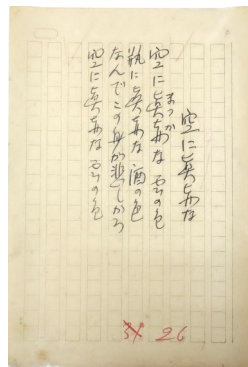 空に真赤な
空に真赤な雲の色
まつか
瓶に真赤な酒の色
なんでこの身が悲しかろ
空に真赤な雲の色
26